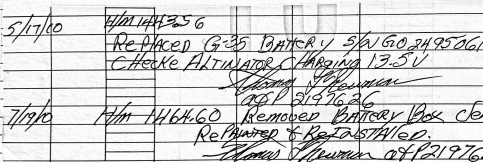 5/17/10 H/M 1443.56
REPLACED G-35 BATTERY S/N G02495061
CHECKE ALTINATOR CHARGING 13.5V
Thomas Newman
a&P 2197626
7/19/10 H/M 1464.60 REMOVED BATTERY BOX CLE
REPAINTED & REINSTALLED.
Thomas Newman a&P 21976